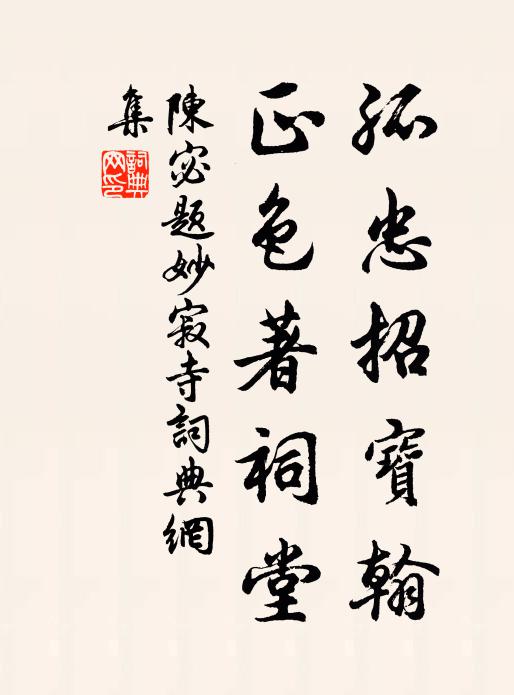 孤忠招寶翰
正色著祠堂
陳宓題妙寂寺詞典網
集
詞典網印